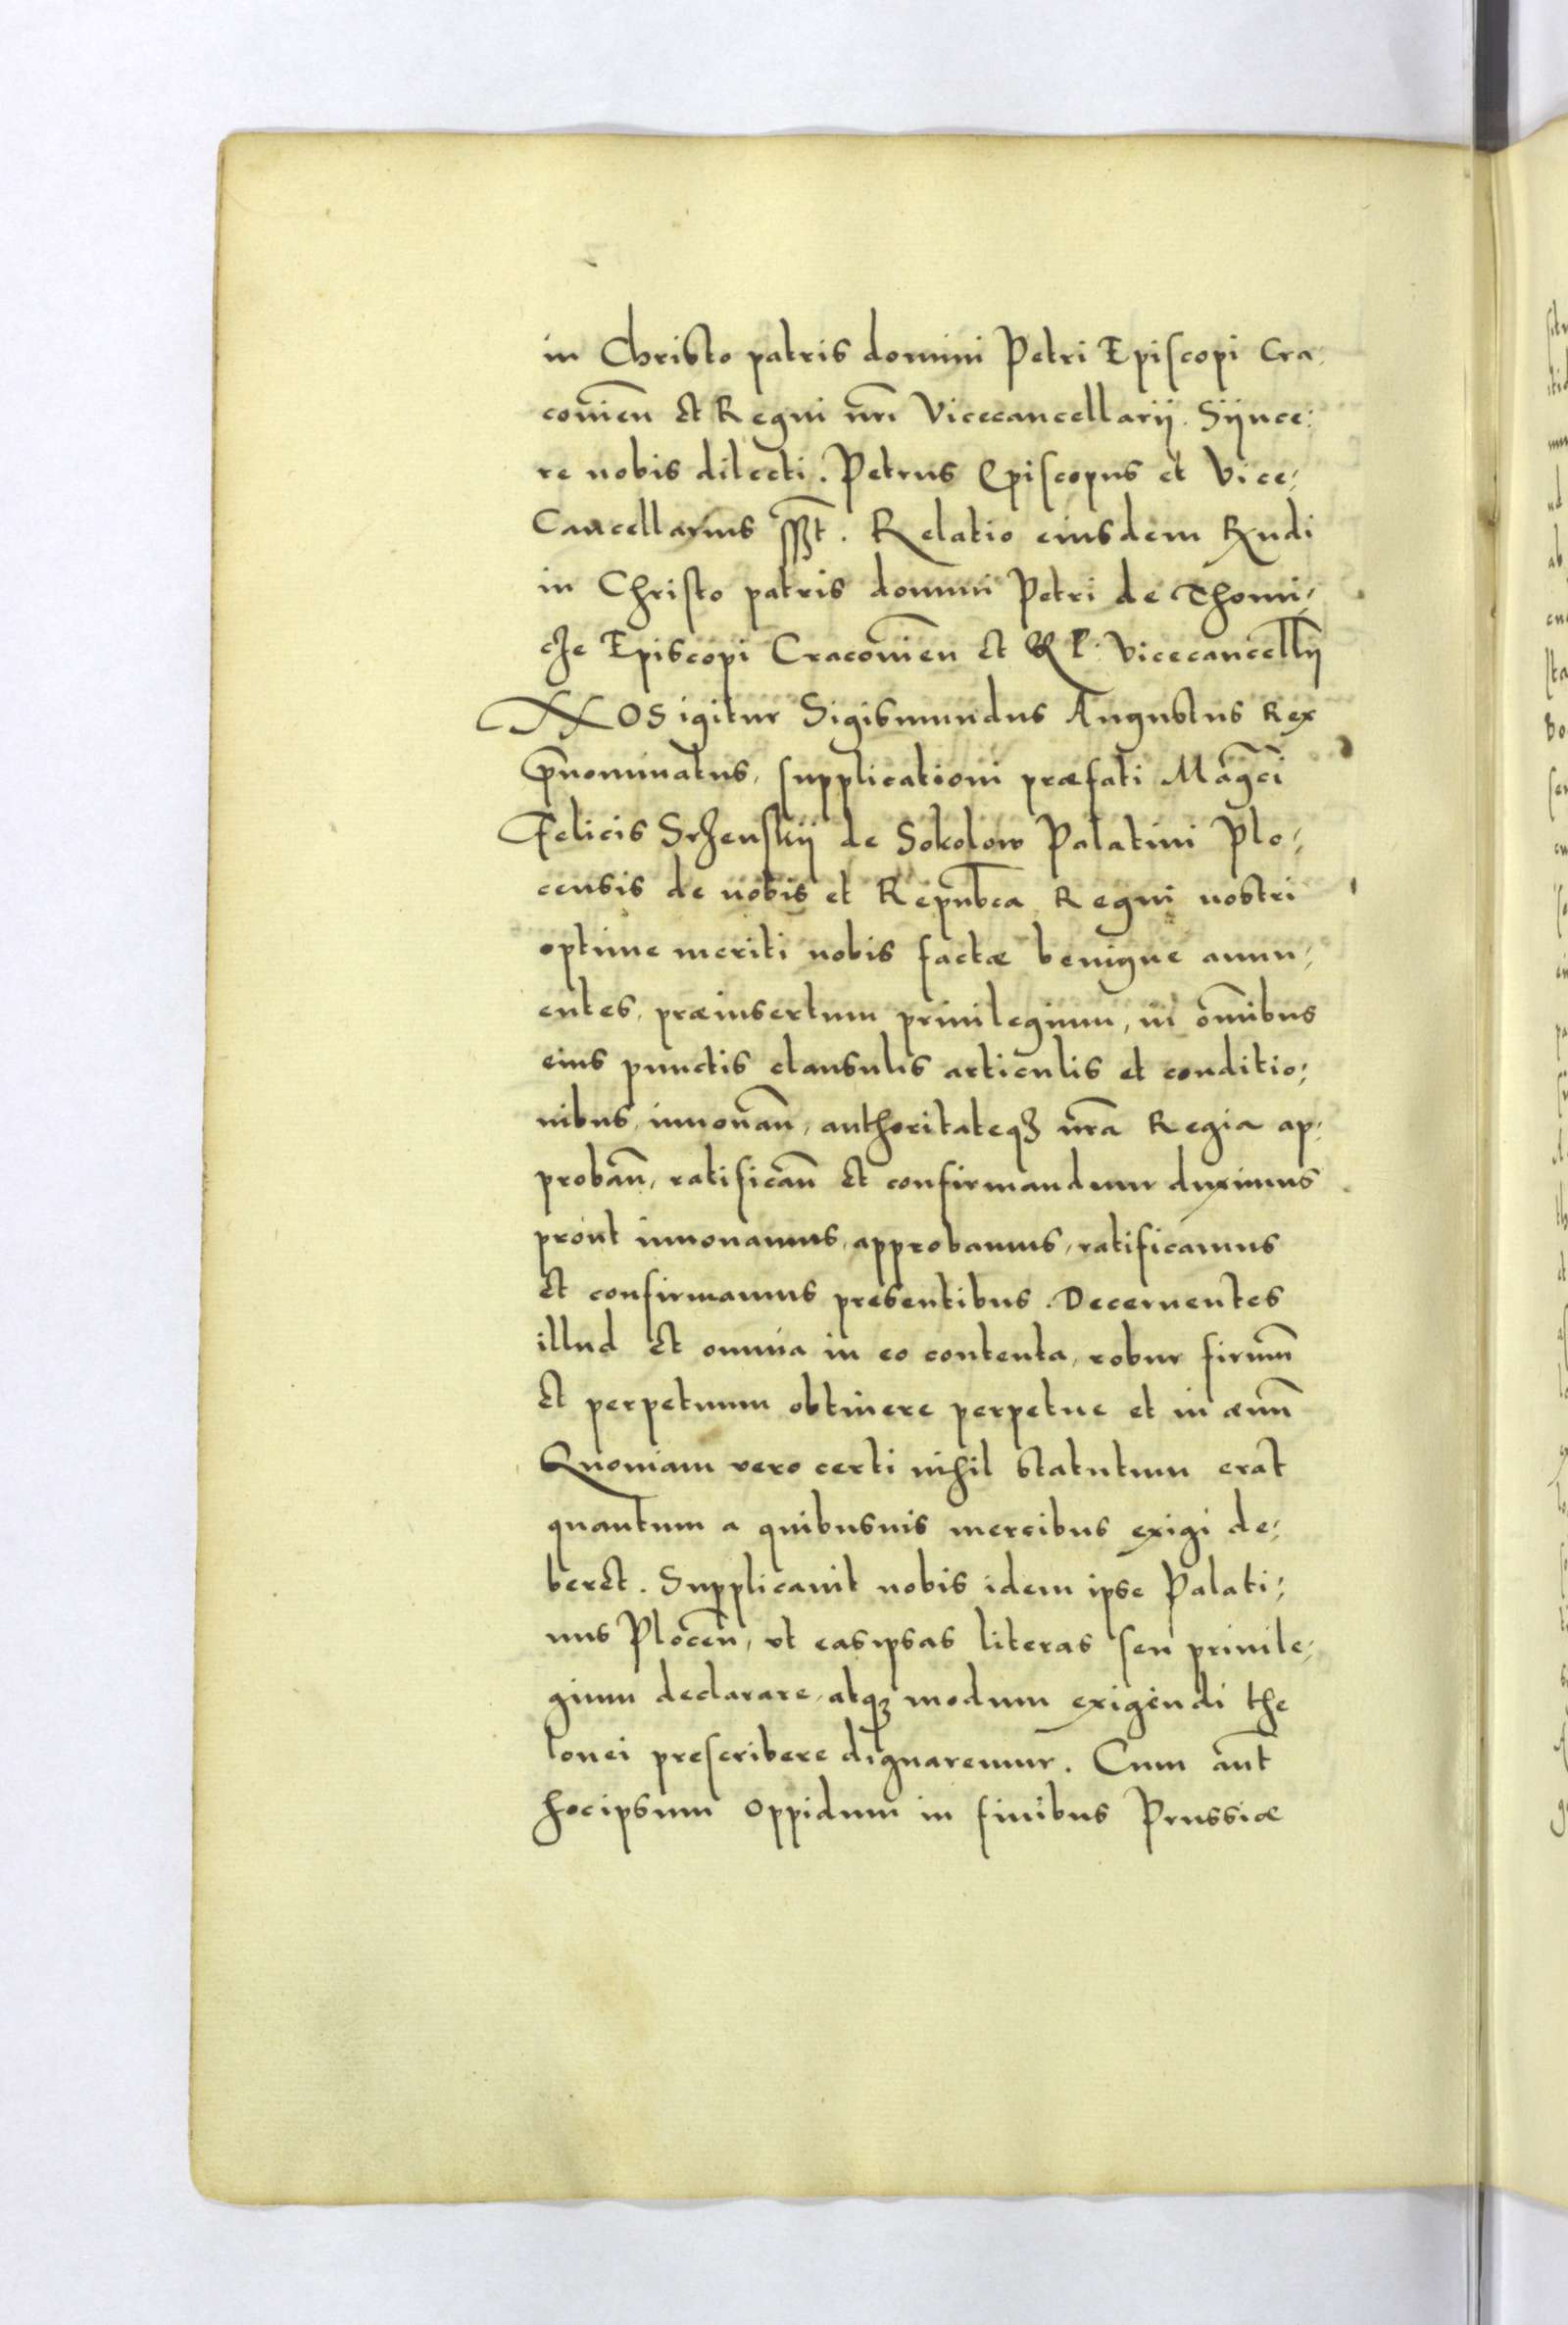 in Christo patris domini Petri Episcopi Cra:
covieñ et Regni nr̃i Vicecancellarij. Sÿnce:
re nobis dilecti. Petrus Episcopus et Vice:
Cancellarius sszt. Relatio eiusdem Rndi
in Christo patris domini Petri de Thomi:
cze Episcopi Cracovieñ et R P: Vicecancellÿ
NOS igitur Sigismundus Augustus Rex
p̄nominatus, supplicationi præfati Mag̃ci
Felicis Srzenskij de Sokolow Palatini Plo:
censis de nobis et Repub̃ca Regni nostri
optime meriti nobis factæ benigne annu:
entes, præinsertum priuilegium, in om̃ibus
eius punctis clausulis articulis et conditio:
nibus innouañ, authoritateqz nr̃a Regia ap:
probañ, ratificañ et confirmandum duximus
prout innouamus, approbamus, ratificamus
et confirmamus presentibus. Decernentes
illud et omnia in eo contenta, robur firmũ
et perpetuum obtinere perpetue et in æuũ
Quoniam vero certi nihil statutum erat
quantum a quibusuis mercibus exigi de:
beret. Supplicauit nobis idem ipse Palati:
nus Ploceñ, vt easipsas literas seu priuile:
gium declarare, atqz modum exigendi the
lonei prescribere dignaremur. Cum aut̃
hocipsum oppidum in finibus Prussiæ